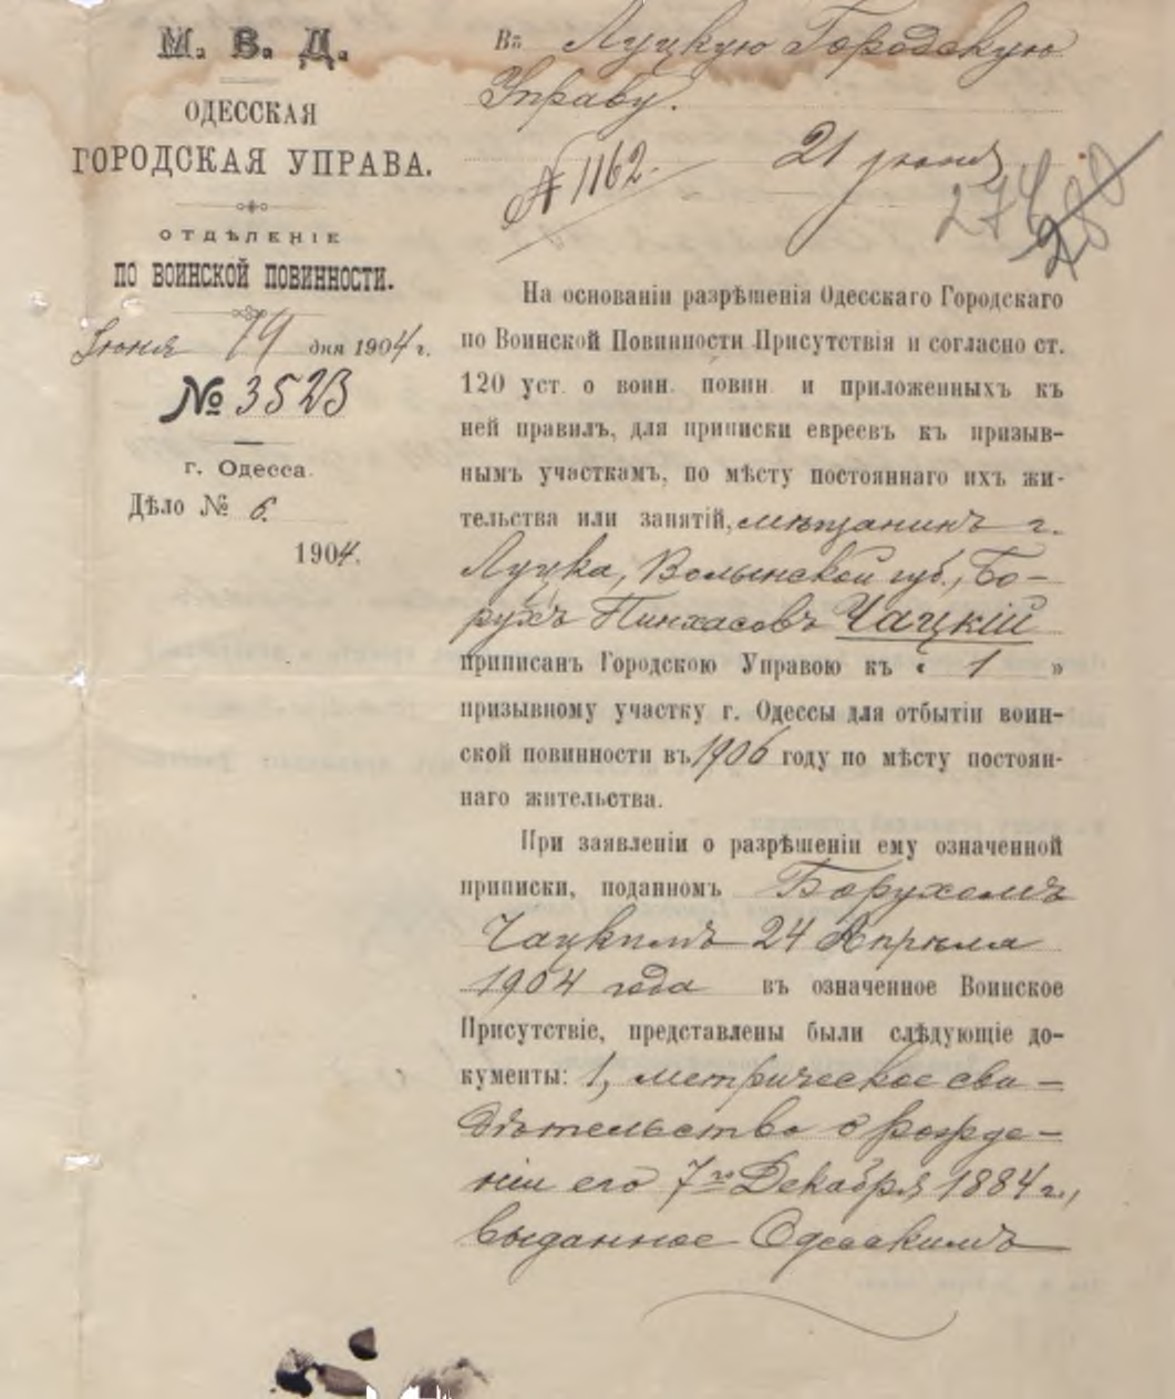 М. В. Д.
ОДЕССКАЯ
ГОРОДСКАЯ УПРАВА.
ОТДѢЛЕНІЕ
ПО ВОИНСКОЙ ПОВИННОСТИ.
Іюня 19 дня 1904 г.
№ 3523
г. Одесса.
Дѣло № 6.
1904.
Въ Луцкую Городскую
Управу.
№ 1162. 21 іюня
274
280
На основаніи разрѣшенія Одесскаго Городскаго
по Воинской Повинности Присутствія и согласно ст.
120 уст. о воин. повин. и приложенныхъ къ
ней правилъ, для приписки евреевъ къ призыв-
нымъ участкамъ, по мѣсту постояннаго ихъ жи-
тельства или занятій, мѣщанинъ г.
Луцка, Волынской губ., Бо-
рухъ Пинхасовъ Чацкій
приписанъ Городскою Управою къ « 1 »
призывному участку г. Одессы для отбытія воин-
ской повинности въ 1906 году по мѣсту постоян-
наго жительства.
При заявленіи о разрѣшеніи ему означенной
приписки, поданномъ Борухомъ
Чацкимъ 24 Апрѣля
1904 года въ означенное Воинское
Присутствіе, представлены были слѣдующіе до-
кументы: 1, метрическое сви-
дѣтельство о рожде-
ніи его 7го Декабря 1884 г.,
выданное Одесскимъ